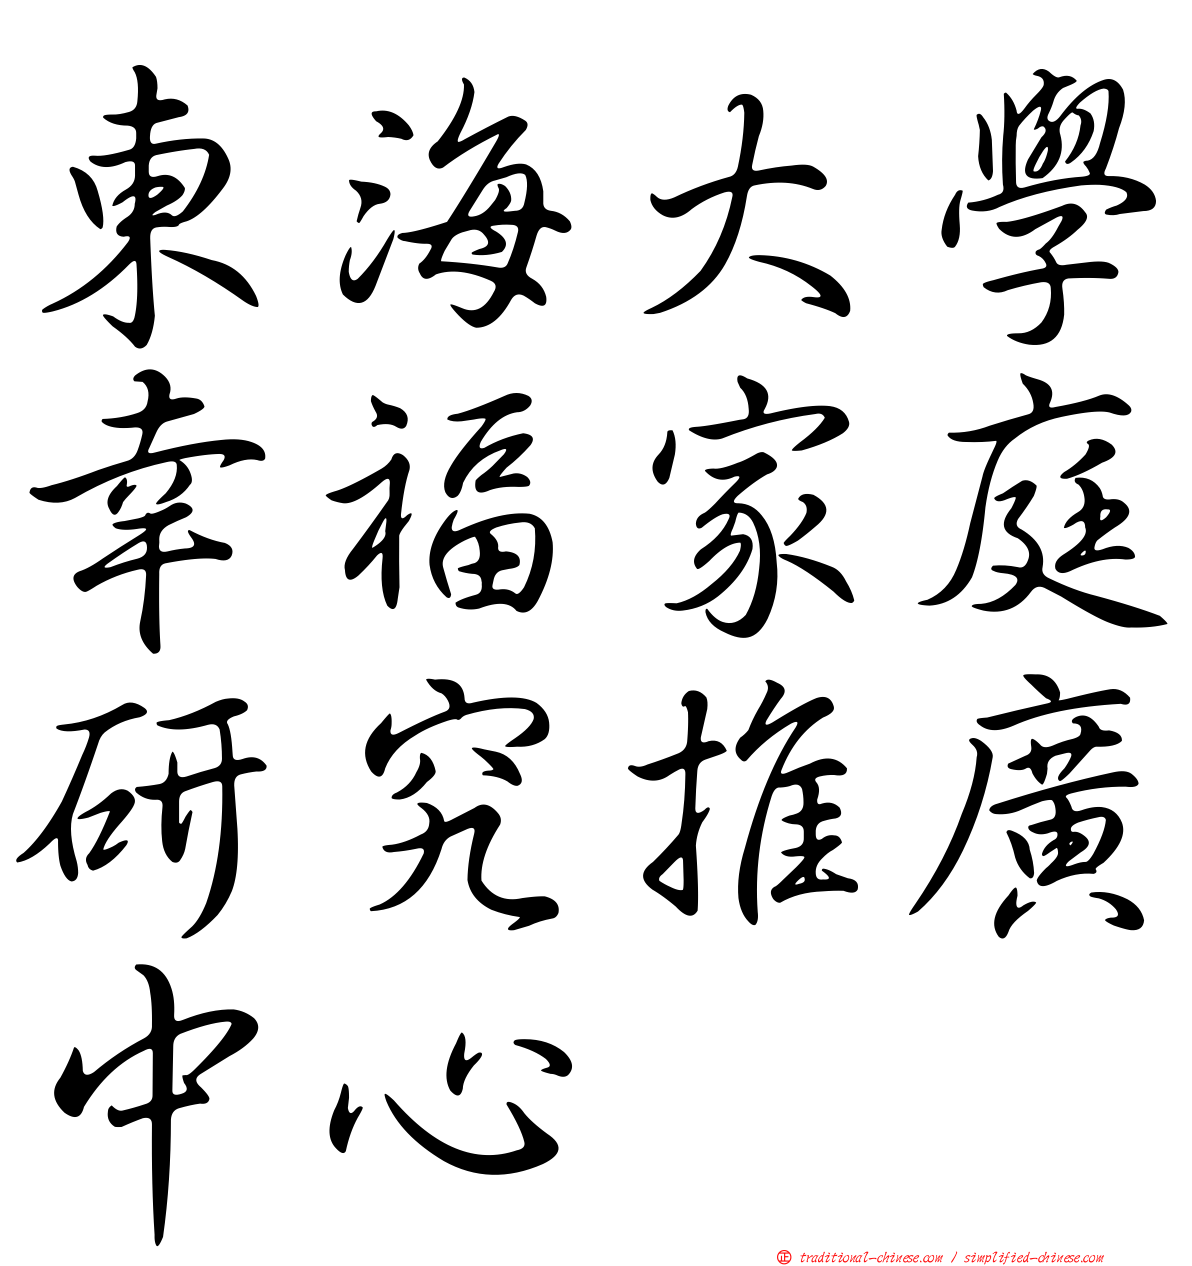 東海大學
幸福家庭
研究推廣
中心
正 traditional-chinese.com / simplified-chinese.com